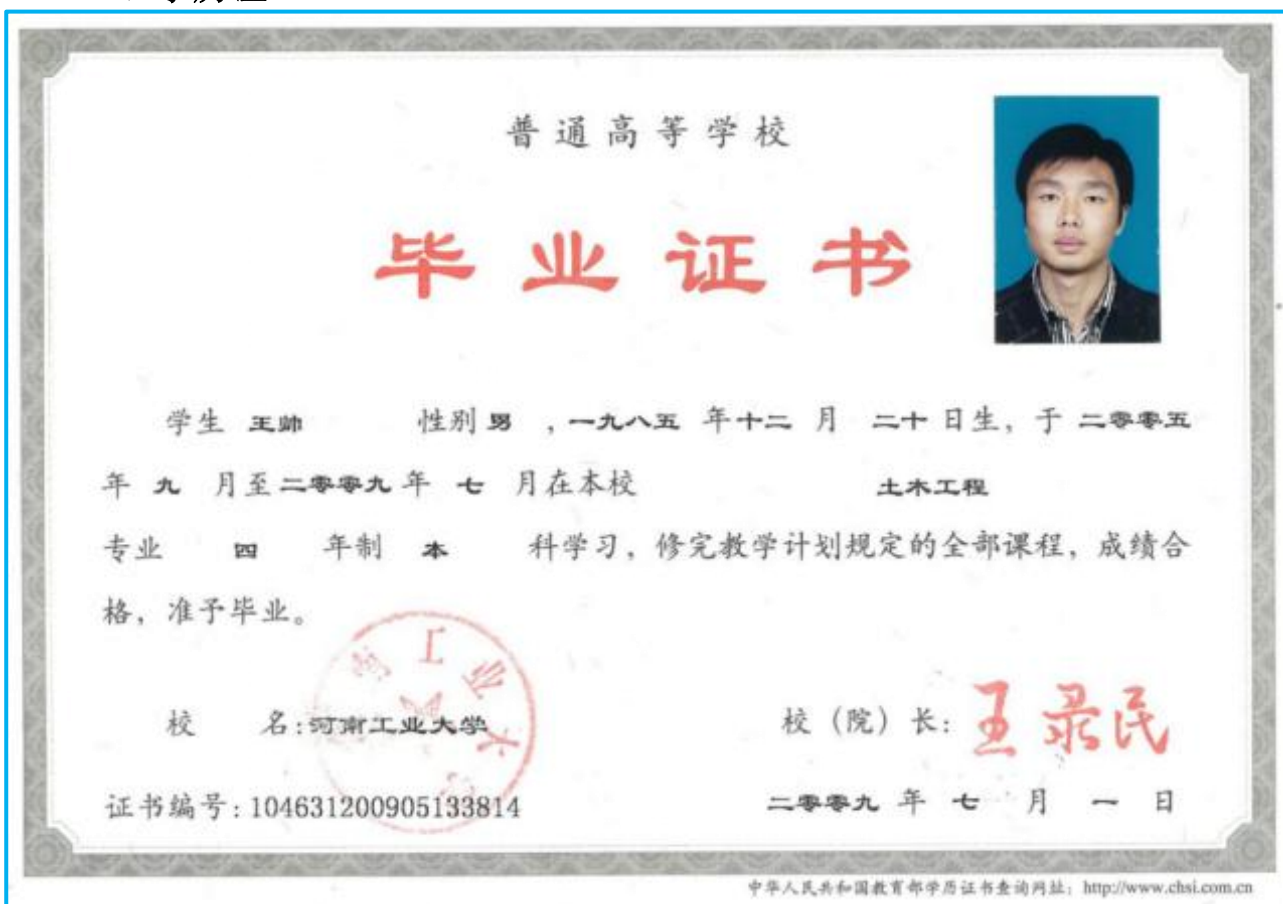 普通高等学校
毕业证书
学生 王帅 性别 男 ，一九八五 年 十二 月 二十 日生，于 二零零五
年 九 月至 二零零九 年 七 月在本校 土木工程
专业 四 年制 本 科学习，修完教学计划规定的全部课程，成绩合
格，准予毕业。
校 名：河南工业大学 校（院）长：王录民
证书编号：104631200905133814 二零零九 年 七 月 一 日
中华人民共和国教育部学历证书查询网址：http://www.chsi.com.cn